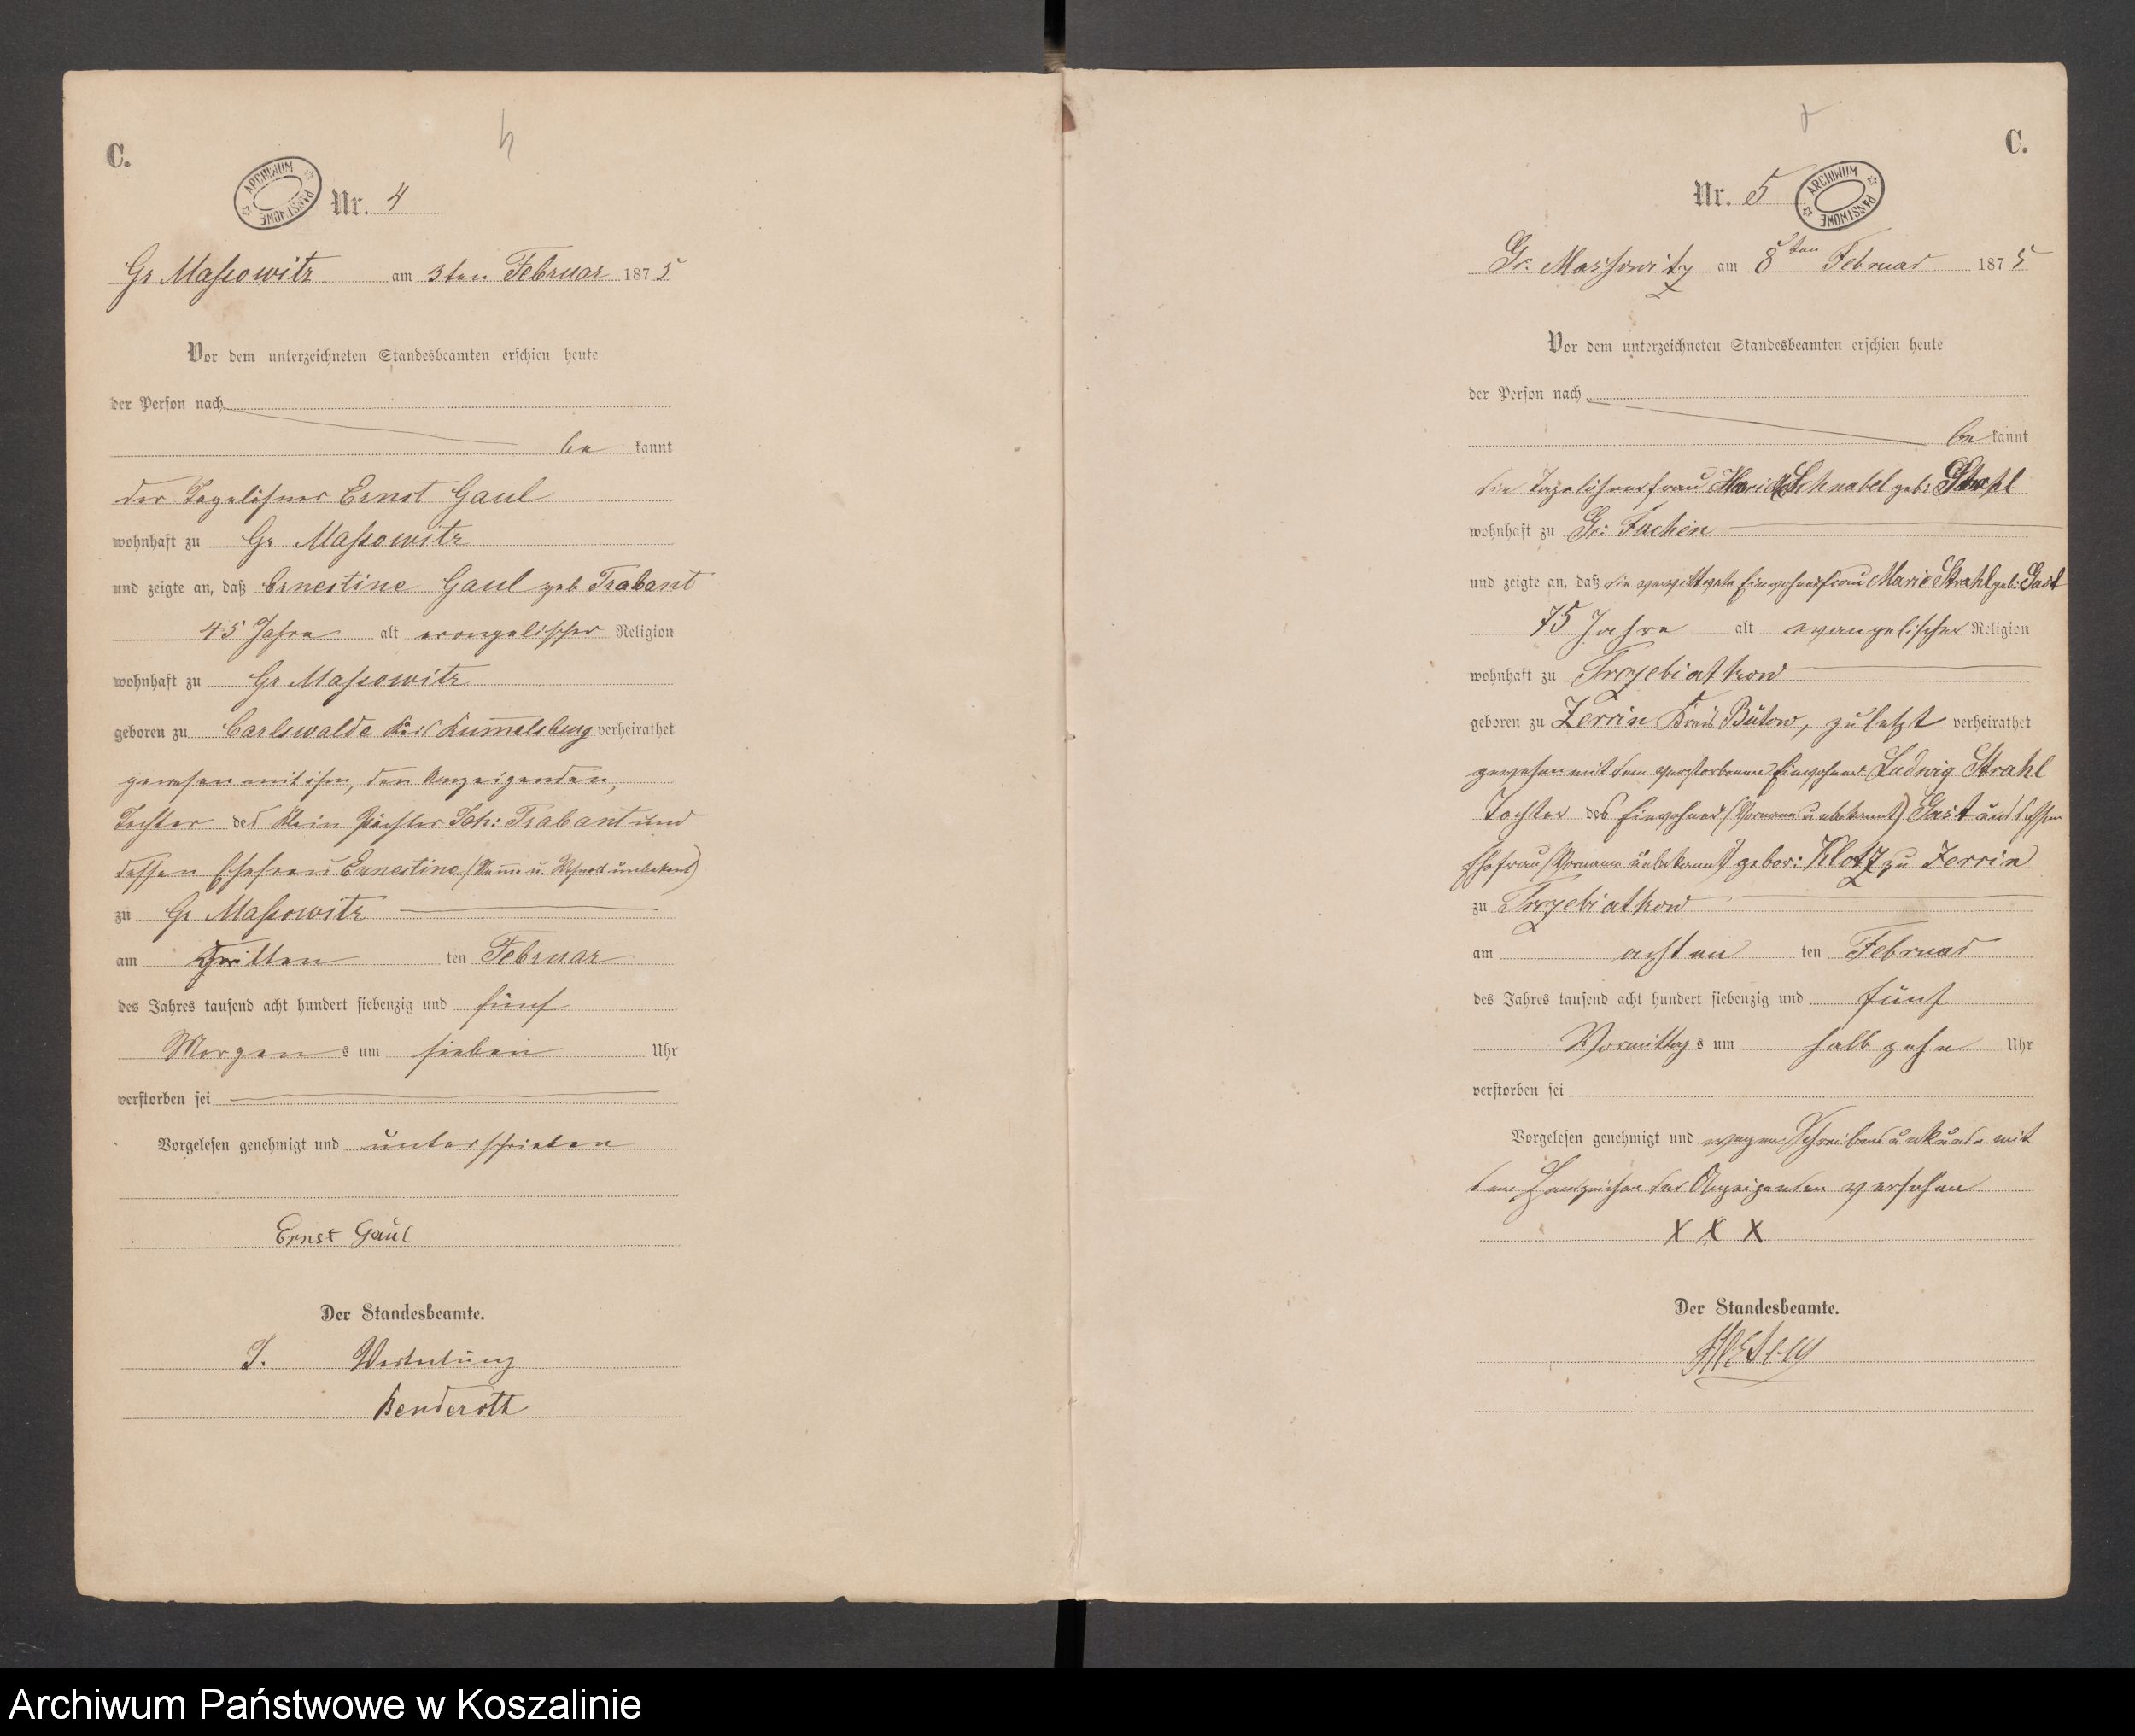 h
C.
ARCHIWUM PAŃSTWOWE
Nr. 4
Gr Massowitz am 3ten Februar 1875
Vor dem unterzeichneten Standesbeamten erschien heute
der Person nach
be kannt
der Tagelöhner Ernst Gaul
wohnhaft zu Gr Massowitz
und zeigte an, daß Ernestine Gaul geb Trabant
45 Jahre alt evangelischer Religion
wohnhaft zu Gr Massowitz
geboren zu Carlswalde Kreis Rummelsburg verheirathet
gewesen mit ihm, den Anzeigenden,
Tochter des Klein Pächter Joh: Trabant und
dessen Ehefrau Ernestine (Name u. Wohnort unbekant)
zu Gr Massowitz
am Dritten ten Februar
des Jahres tausend acht hundert siebenzig und fünf
Morgen s um sieben Uhr
verstorben sei
Vorgelesen genehmigt und unterschrieben
Ernst Gaul
Der Standesbeamte.
I. Vertretung
Benderoth
C.
Nr. 5
ARCHIWUM PAŃSTWOWE
Gr: Massowitz am 8ten Februar 1875
Vor dem unterzeichneten Standesbeamten erschien heute
der Person nach
be kannt
die Tagelöhnerfrau Schnabel geb: Strahl
wohnhaft zu Gr: Tuchen
und zeigte an, daß die verwittwete Einwohnerfrau Marie Strahl geb: Gast
75 Jahre alt evangelischer Religion
wohnhaft zu Trzebiatkow
geboren zu Zerrin Kreis Bütow, zuletzt verheirathet
gewesen mit dem verstorbenen Einwohner Ludwig Strahl
Tochter des Einwohner (Vorname unbekannt) Gast und dessen
Ehefrau (Vorname unbekannt) gebor: Klotz zu Zerrin
zu Trzebiatkow
am achten ten Februar
des Jahres tausend acht hundert siebenzig und fünf
Vormittag s um halb zehn Uhr
verstorben sei
Vorgelesen genehmigt und wegen Schreibensunkunde mit
dem Handzeichen der Anzeigenden versehen
X X X
Der Standesbeamte.
Archiwum Państwowe w Koszalinie